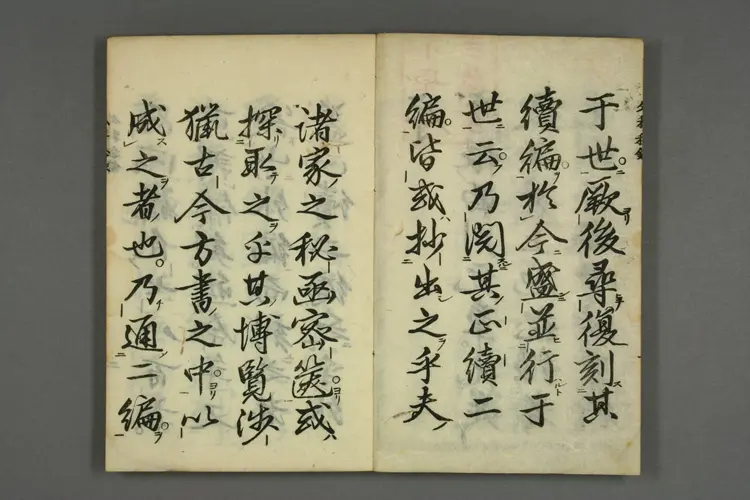 于世厥後尋復刻其
續編於今盛並行于
世云乃閲其正續二
編皆或抄出之乎夫
諸家之秘函密篋或
探取之乎其博覽涉
獵古今方書之中以
成之者也乃通二編